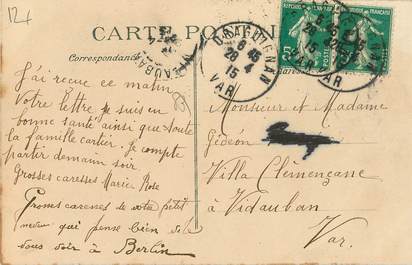 124
CARTE POSTALE
Correspondance
J'ai reçue ce matin
Votre lettre je suis en
bonne santé ainsi que toute
la famille cartier. je compte
partir demain soir
Grosses caresses Marie Rose
Groses caresses de votre petit
neveu qui pense bien de
vous voir à Berlin
DRAGUIGNAN
6 45
28 4
15
VAR
Monsieur et Madame
Gédéon
Villa Clémençane
à Vidauban
Var.